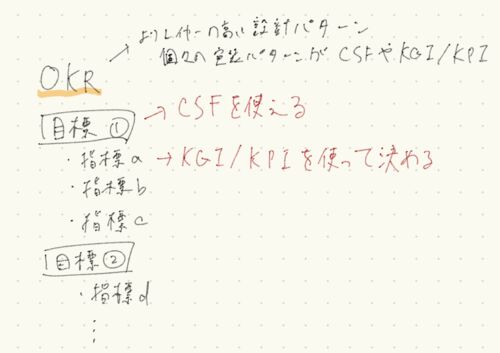 OKR → よりレイヤーの高い設計パターン
個々の実装パターンが CSFやKGI/KPI
目標 ① → CSFを使える
・指標a → KGI/KPIを使って決める
・指標b
・指標c
目標②
・指標d
⋮